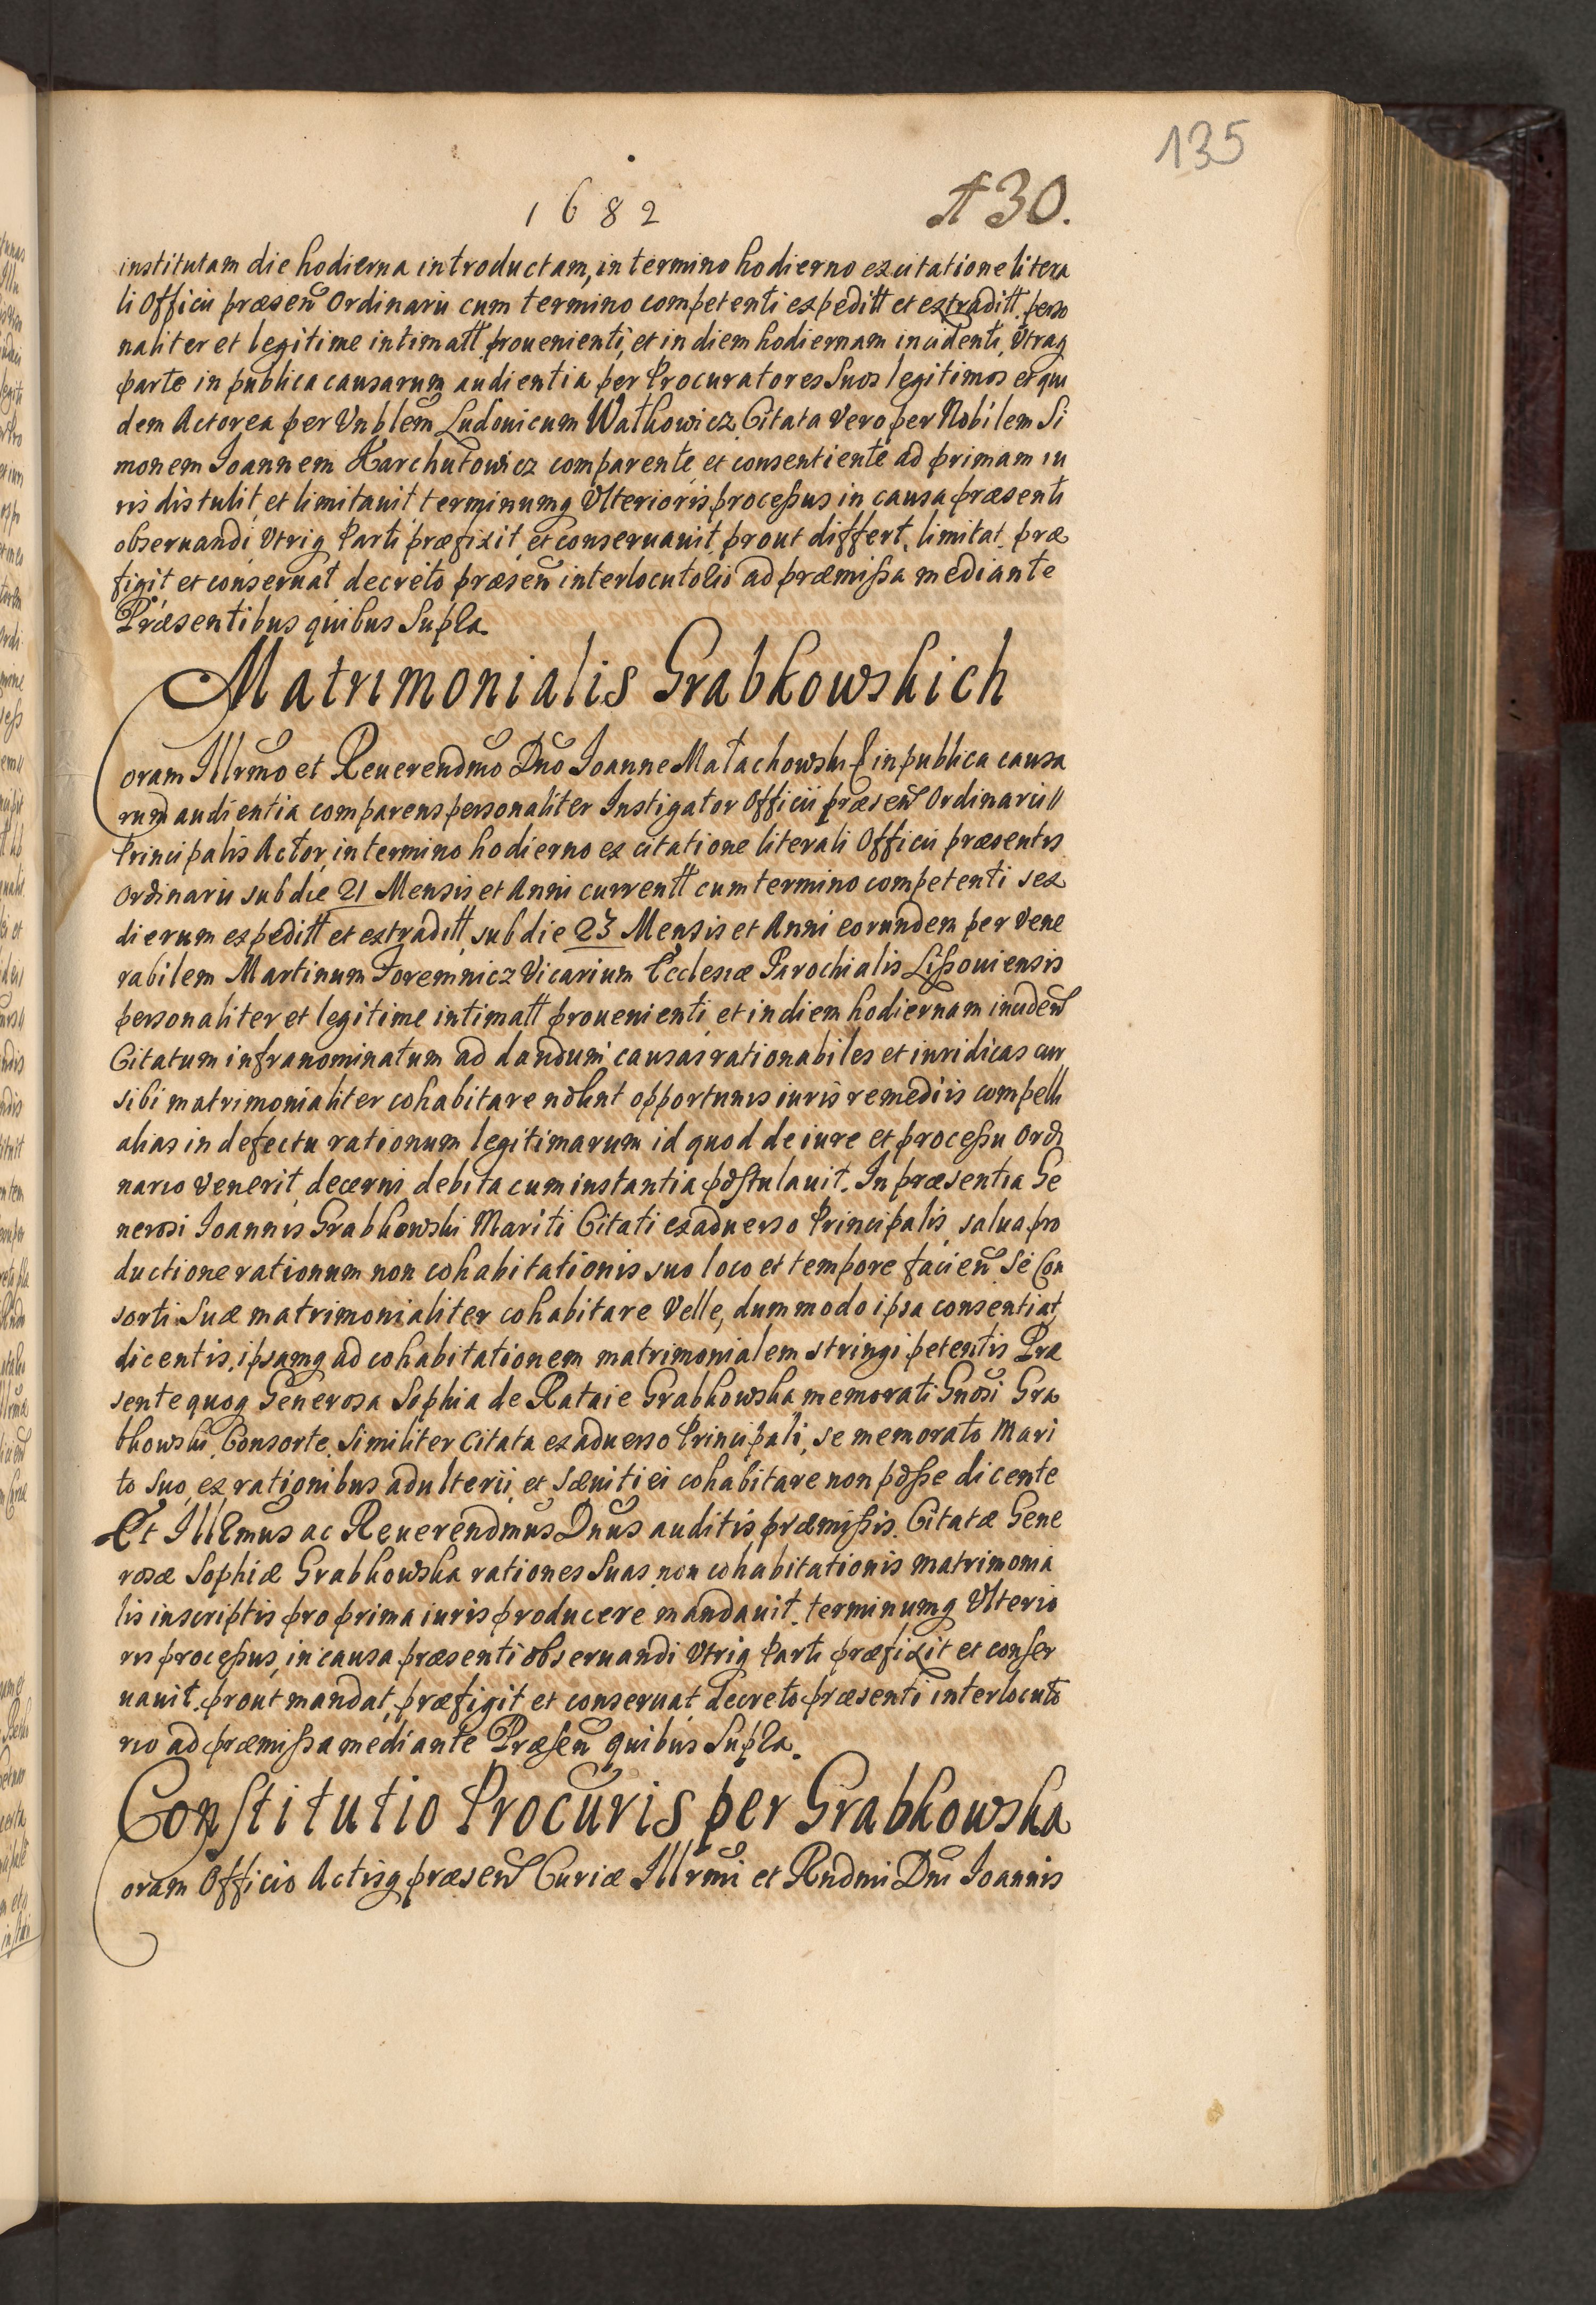 135
1682
A 30.
institutam die hodierna introductam, in termino hodierno ex citatione litera
li Officii præsen Ordinarii cum termino competenti expeditt et extraditt. perso
naliter et legitime intimatt prouenienti, et in diem hodiernam incidenti, Vtraq
parte in publica causarum audientia per Procuratores Suos legitimos et qui
dem Actorea per Vnblem Ludouicum Wałkowicz Citata Vero per Nobilem Si
monem Joannem Karchutowicz comparente et consentiente ad primam iu
ris distulit et limitauit terminumq Vlterioris processus in causa præsenti
obseruandi Vtriq Parti præfixit et conseruauit prout differt, limitat præ
figit et conseruat decreto præsen interlocutorio ad præmissa mediante
Præsentibus quibus Supra
Matrimonialis Grabkowskich
Coram Illrmo et Reuerendmo Dno Joanne Małachowski E in publica causa
rum audientia comparens personaliter Instigator Officii præsen Ordinarii
Principalis Actor in termino hodierno ex citatione literali Officii præsentis
Ordinarii sub die 21 Mensis et Anni currentt cum termino competenti sex
dierum expeditt et extraditt sub die 23 Mensis et Anni eorundem per Vene
rabilem Martinum Foremnicz Vicarium Ecclesiæ Parochialis Lissouiensis
personaliter et legitime intimatt prouenienti et in diem hodiernam inciden
Citatum infranominatum ad dandum causas rationabiles et iuridicas cur
sibi matrimonialiter cohabitare nolunt opportunis iuris remediis compelli
alias in defectu rationum legitimarum id quod de iure et processu Ordi
nario Venerit decerni debita cum instantia postulauit. In præsentia Ge
nerosi Joannis Grabkowski Mariti Citati ex aduerso Principalis, salua pro
ductione rationum non cohabitationis suo loco et tempore facien Se Con
sorti Suæ matrimonialiter cohabitare Velle, dummodo ipsa consentiat
dicentis, ipsamq ad cohabitationem matrimonialem stringi petentis Præ
sente quoq Generosa Sophia de Rataie Grabkowska memorati Gnosi Gra
bkowski Consorte Similiter Citata ex aduerso Principali, se memorato Mari
to suo ex rationibus adulterii et Sæuitiei cohabitare non posse dicente
Et Illrmus ac Reuerendmus Dnus auditis præmissis Citatæ Gene
rosæ Sophiæ Grabkowska rationes Suas non cohabitationis matrimonia
lis in scriptis pro prima iuris producere mandauit terminumq Vlterio
ris processus in causa præsenti obseruandi Vtriq Parti præfixit et conser
uauit, prout mandat, præfigit et conseruat decreto præsenti interlocuto
rio ad præmissa mediante Præsen quibus Supra.
Constitutio Procuris per Grabkowska
Coram Officio Actisq præsen Curiæ Illrmi et Rndmi Dni Joannis